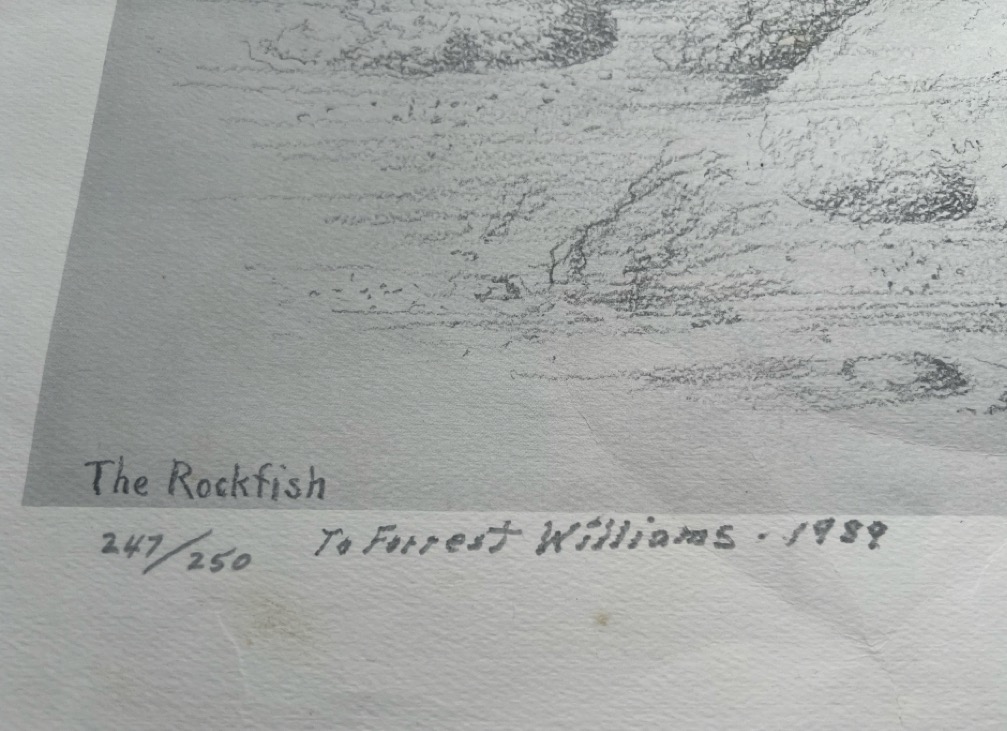 The Rockfish
247/250 To Forrest Williams . 1989